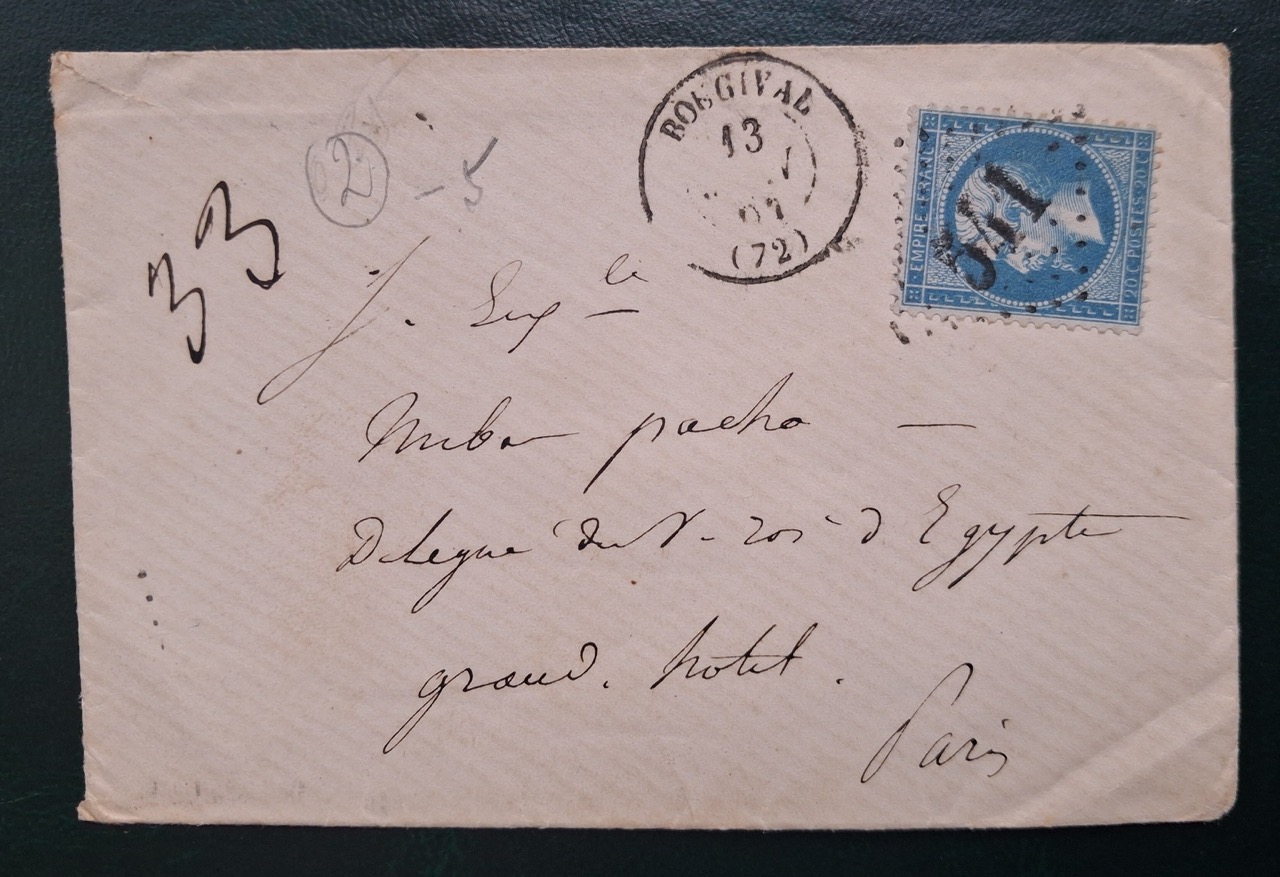 BOUGIVAL
13
(72)
EMPIRE FRANC
541
20 C POSTES 20 C
2 - 5
33
S. Exc le
Nubar pacha —
Delegue du V-roi d Egypte
grand. hotel.
Paris